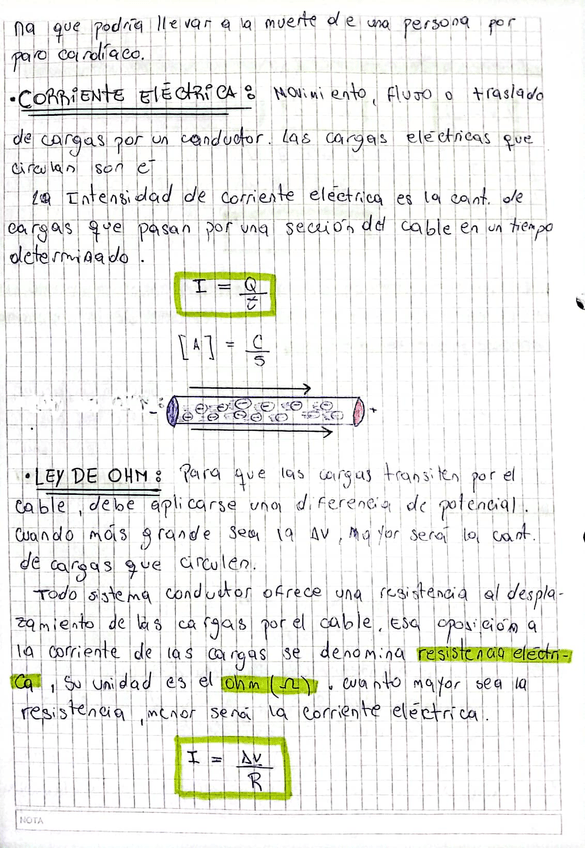 na que podría llevar a la muerte de una persona por
paro cardíaco.
• CORRIENTE ELÉCTRICA: Movimiento, flujo o traslado
de cargas por un conductor. Las cargas eléctricas que
circulan son e⁻
La Intensidad de corriente eléctrica es la cant. de
cargas que pasan por una sección del cable en un tiempo
determinado.
I = Q/t
[A] = C/s
- +
• LEY DE OHM: Para que las cargas transiten por el
cable, debe aplicarse una diferencia de potencial.
Cuando más grande sea la ΔV, mayor será la cant.
de cargas que circulen.
Todo sistema conductor ofrece una resistencia al despla-
zamiento de las cargas por el cable. Esa oposición a
la corriente de las cargas se denomina resistencia eléctri-
ca, su unidad es el ohm (Ω). Cuanto mayor sea la
resistencia, menor será la corriente eléctrica.
I = ΔV/R
NOTA